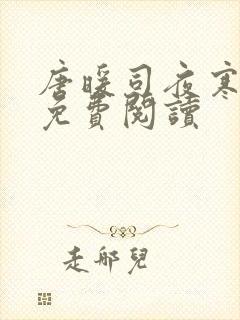 唐暖司夜寒
免費閱讀
走郍兒